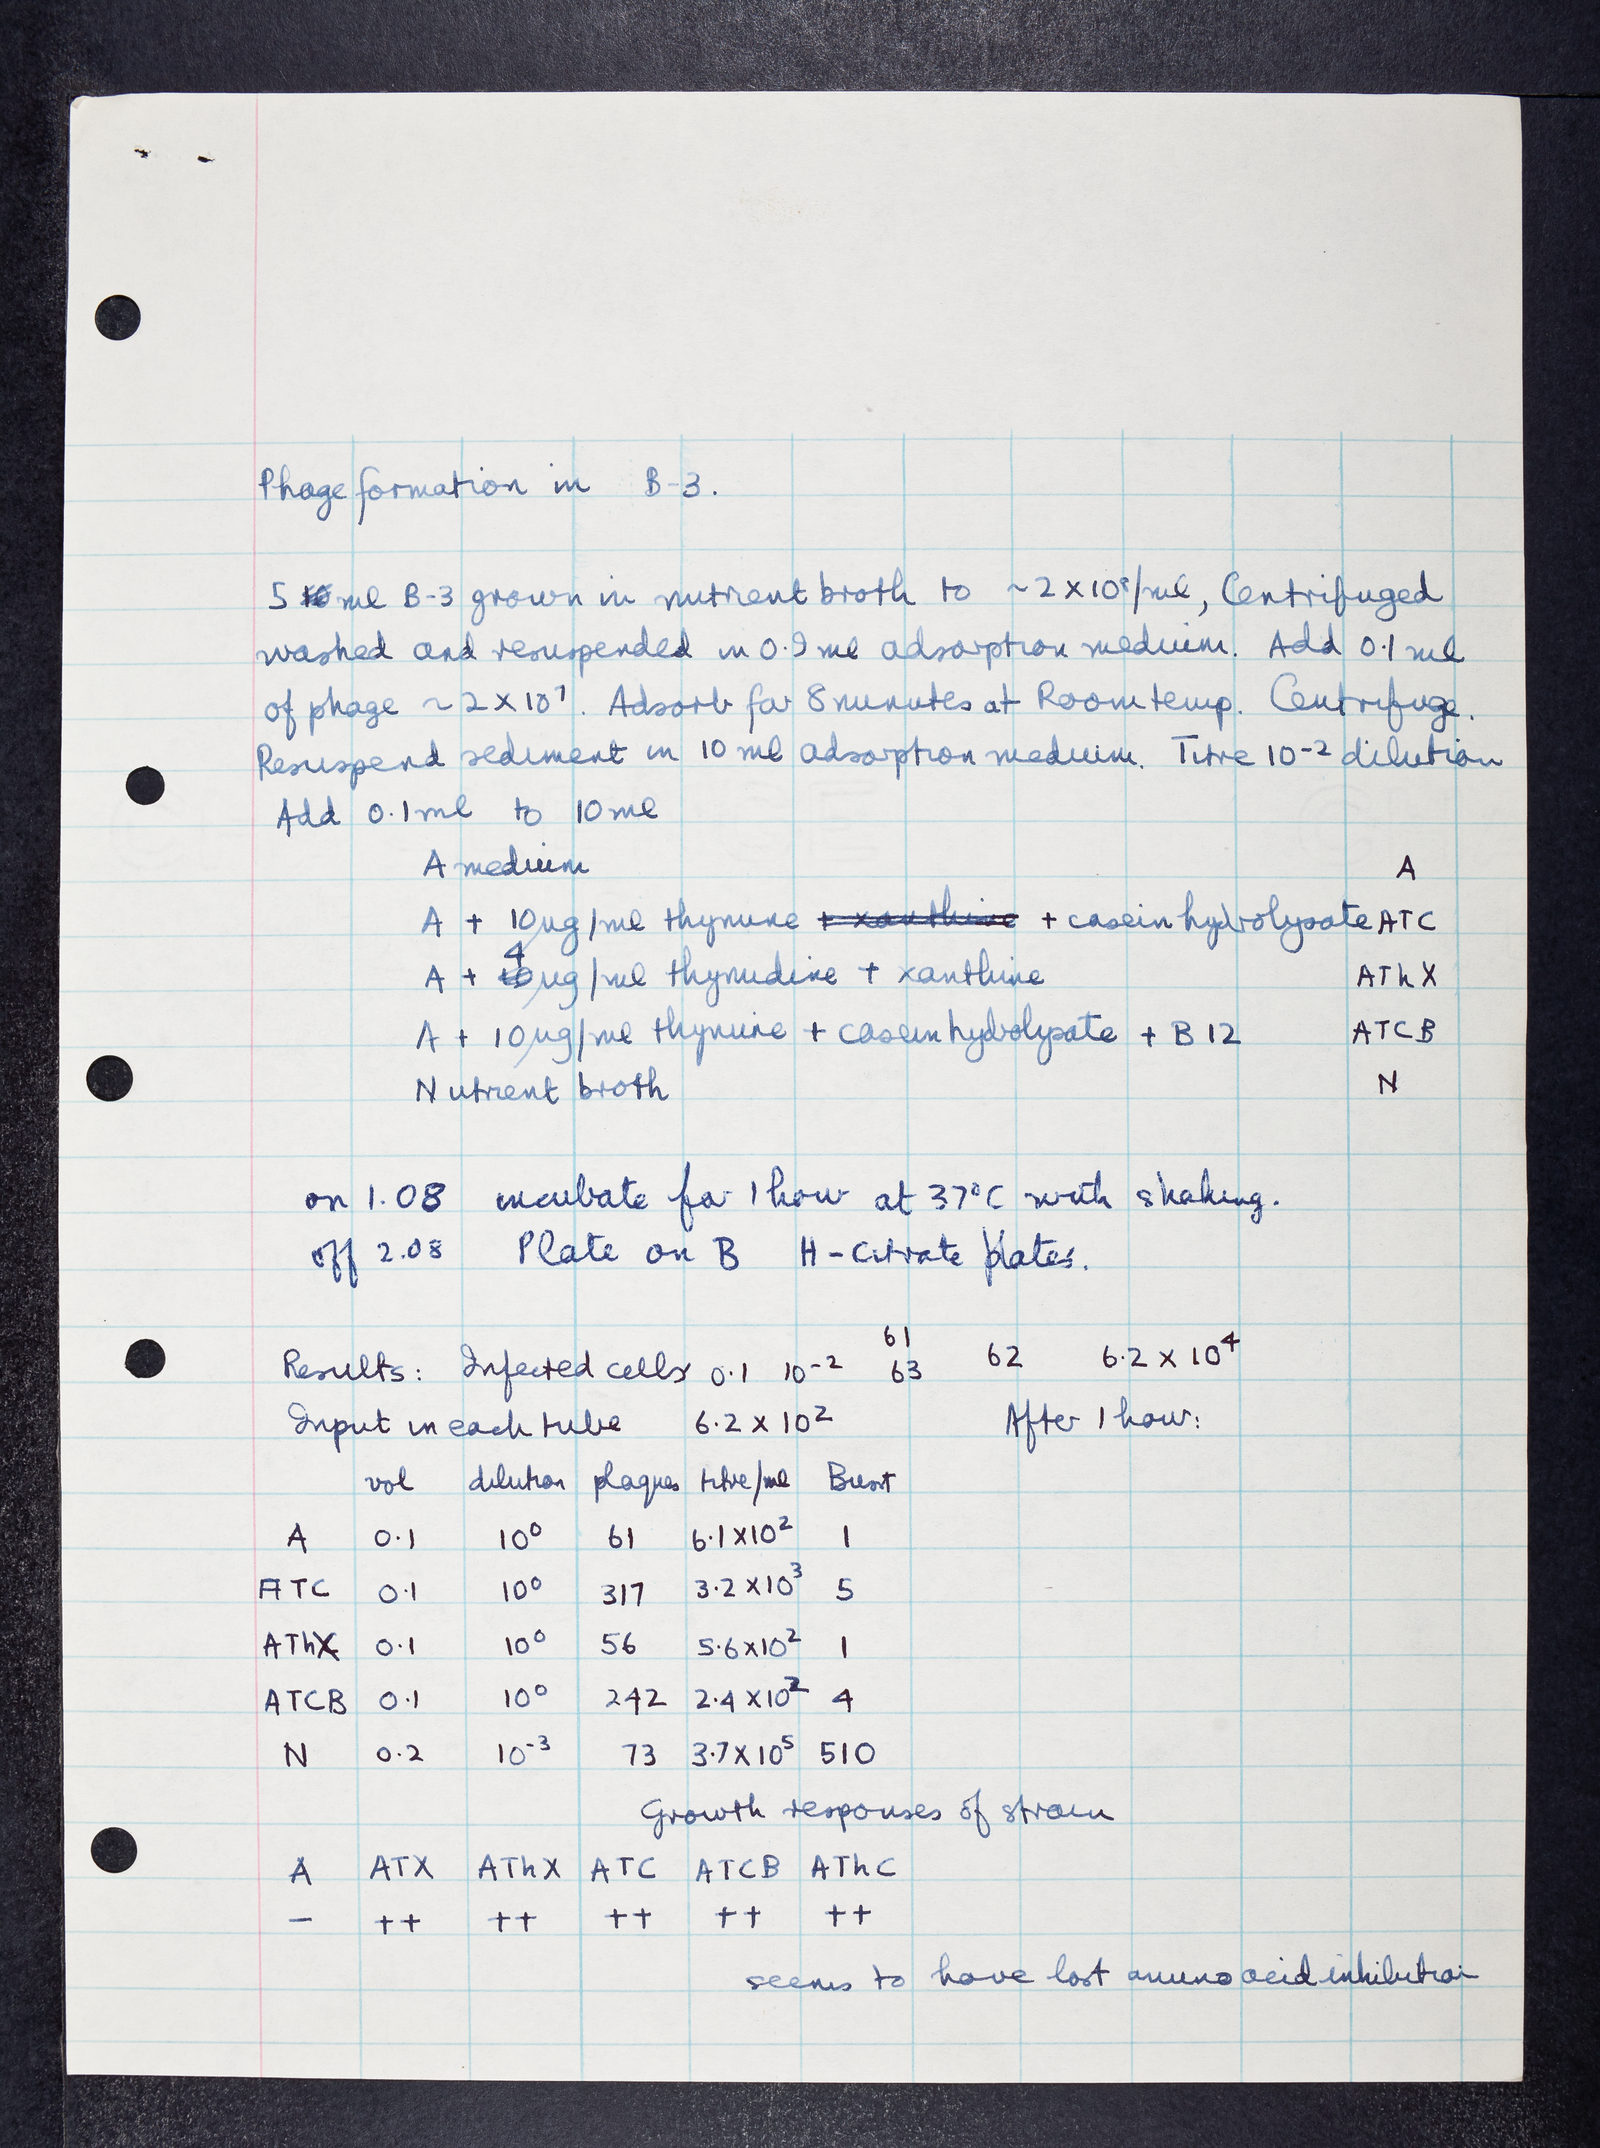 Phage formation in B-3.
5 ml B-3 grown in nutrient broth to ~2 x 10⁸/ml, Centrifuged
washed and resuspended in 0.9 ml adsorption medium. Add 0.1 ml
of phage ~ 2 x 10⁷. Adsorb for 8 minutes at Room temp. Centrifuge.
Resuspend sediment in 10 ml adsorption medium. Titre 10⁻² dilution
Add 0.1 ml to 10 ml
A medium A
A + 10 ug/ml thymine + xanthine + casein hydrolysate ATC
A + 4 ug/ml thymidine + xanthine AThX
A + 10 ug/ml thymine + casein hydrolysate + B 12 ATCB
Nutrient broth N
on 1.08 incubate for 1 hour at 37°C with shaking.
off 2.08 Plate on B H-citrate plates.
61
Results: Infected cells 0.1 10⁻² 63 62 6.2 x 10⁴
Input in each tube 6.2 x 10² After 1 hour:
vol dilution plaques titre/ml Burst
A 0.1 10⁰ 61 6.1 x 10² 1
ATC 0.1 10⁰ 317 3.2 x 10³ 5
AThX 0.1 10⁰ 56 5.6 x 10² 1
ATCB 0.1 10⁰ 242 2.4 x 10² 4
N 0.2 10⁻³ 73 3.7 x 10⁵ 510
Growth responses of strain
A ATX AThX ATC ATCB AThC
– ++ ++ ++ ++ ++
seems to have lost amino acid inhibition